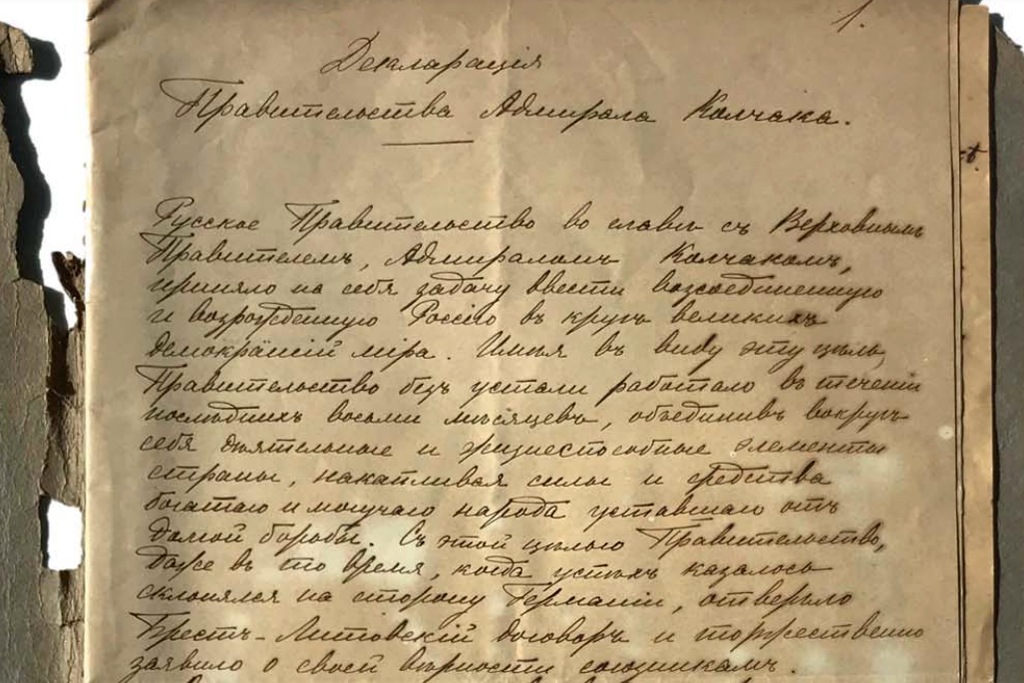 1.
Декларація
Правительства Адмирала Колчака.
Русское Правительство во главѣ съ Верховнымъ
Правителемъ, Адмираломъ Колчакомъ,
приняло на себя задачу ввести возсоединенную
и возрожденную Россію въ кругъ великихъ
демократій міра. Имѣя въ виду эту цѣль,
Правительство безъ устали работало въ теченіи
послѣднихъ восьми мѣсяцевъ, объединивъ вокругъ
себя дѣятельные и жизнеспособные элементы
страны, накапливая силы и средства
богатаго и могучаго народа уставшаго отъ
долгой борьбы. Съ этой цѣлью Правительство,
даже въ то время, когда успѣхъ казалось
склонялся на сторону Германіи, отвергло
Брестъ-Литовскій договоръ и торжественно
заявило о своей вѣрности союзникамъ.